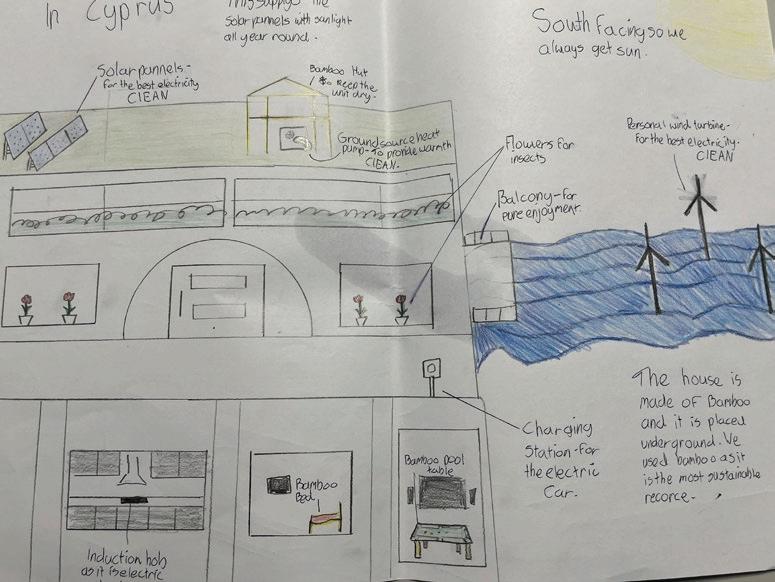 In Cyprus
This supplys the
solar pannels with sunlight
all year round.
South facing so we
always get sun.
Solar pannels-
for the best electricity
CLEAN
Bamboo Hut
to keep the
unit dry.
Ground source heat
pump-to provide warmth
CLEAN.
Flowers for
insects
Balcony-for
pure enjoyment.
Personal wind turbine-
for the best electricity.
CLEAN
Charging
Station-for
the electric
Car.
The house is
made of Bamboo
and it is placed
underground. Ve
used bamboo as it
is the most sustainable
recorce.
Bamboo pool
table
Bamboo
Bed
Induction hob
as it is electric